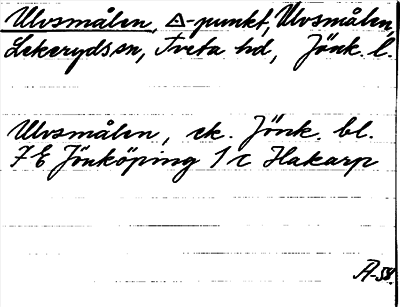 Ulvsmålen, △-punkt, Ulvsmålen,
Lekerydssn, Tveta hd, Jönk. l.
Ulvsmålen, ek. Jönk. bl.
7 E Jönköping 1 c Hakarp
Ä-58.